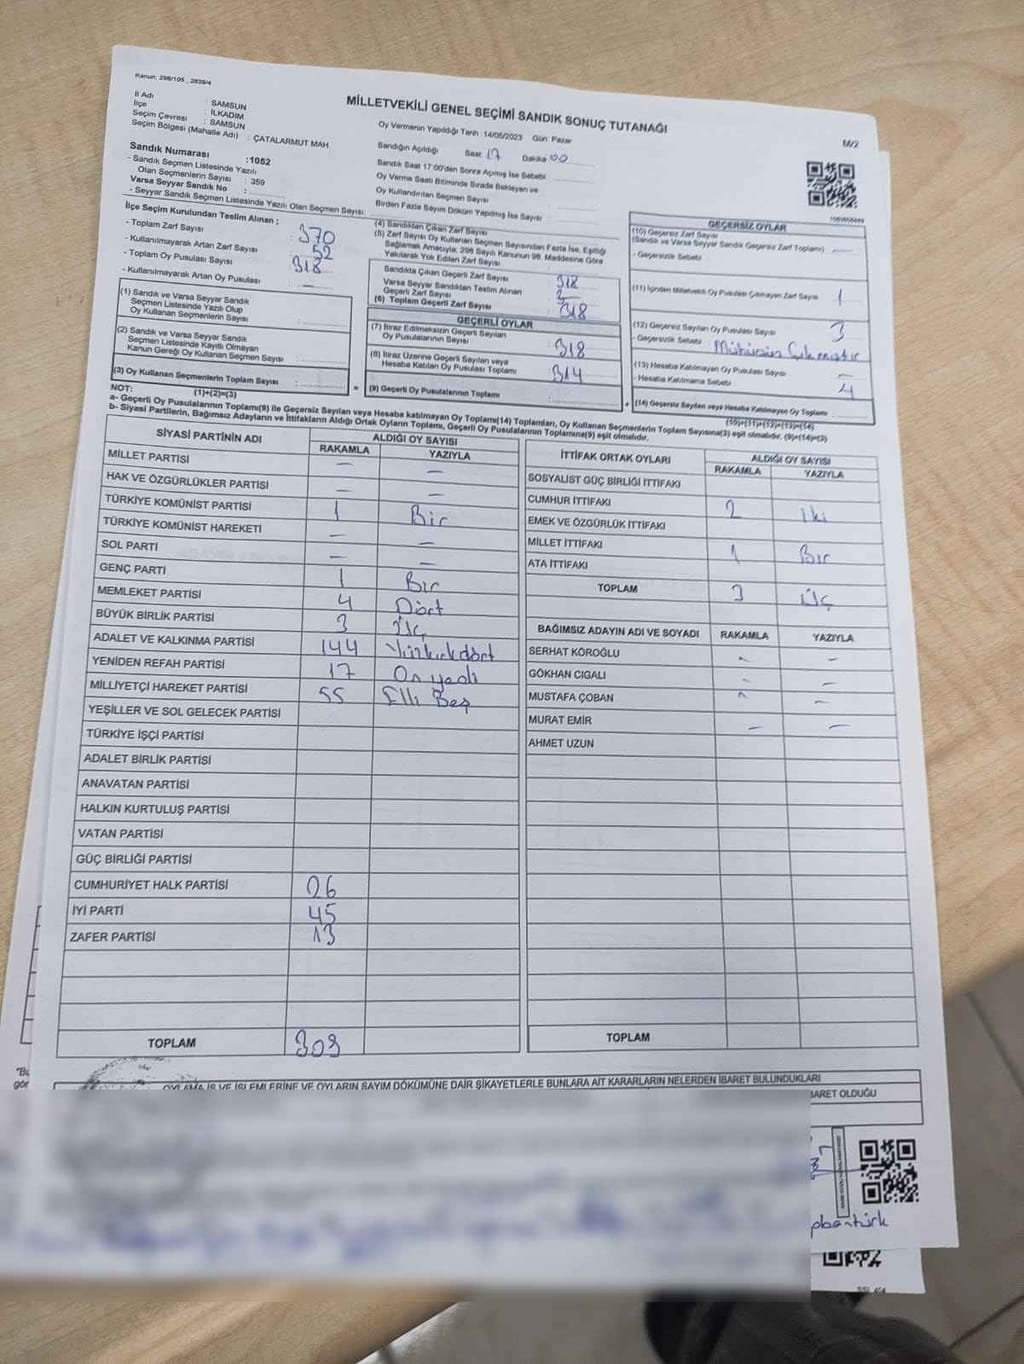 Kanun; 298/105 , 2839/4
MİLLETVEKİLİ GENEL SEÇİMİ SANDIK SONUÇ TUTANAĞI
M/2
İl Adı : SAMSUN
İlçe : İLKADIM
Seçim Çevresi : SAMSUN
Seçim Bölgesi (Mahalle Adı) : ÇATALARMUT MAH.
Sandık Numarası :1052
- Sandık Seçmen Listesinde Yazılı
Olan Seçmenlerin Sayısı : 359
Varsa Seyyar Sandık No :
- Seyyar Sandık Seçmen Listesinde Yazılı Olan Seçmen Sayısı :
Oy Vermenin Yapıldığı Tarih :14/05/2023 Gün: Pazar
Sandığın Açıldığı Saat 17 Dakika 00
Sandık Saat 17:00'den Sonra Açılmış İse Sebebi
Oy Verme Saati Bitiminde Sırada Bekleyen ve
Oy Kullandırılan Seçmen Sayısı
Birden Fazla Sayım Döküm Yapılmış İse Sayısı
İlçe Seçim Kurulundan Teslim Alınan ;
- Toplam Zarf Sayısı : 370
- Kullanılmayarak Artan Zarf Sayısı : 52
- Toplam Oy Pusulası Sayısı : 318
- Kullanılmayarak Artan Oy Pusulası : —
(1) Sandık ve Varsa Seyyar Sandık
Seçmen Listesinde Yazılı Olup
Oy Kullanan Seçmenlerin Sayısı :
(2) Sandık ve Varsa Seyyar Sandık
Seçmen Listesinde Kayıtlı Olmayan
Kanun Gereği Oy Kullanan Seçmen Sayısı :
(3) Oy Kullanan Seçmenlerin Toplam Sayısı :
(1)+(2)=(3)
(4) Sandıktan Çıkan Zarf Sayısı
(5) Zarf Sayısı Oy Kullanan Seçmen Sayısından Fazla İse, Eşitliği
Sağlamak Amacıyla; 298 Sayılı Kanunun 98. Maddesine Göre
Yakılarak Yok Edilen Zarf Sayısı
Sandıkta Çıkan Geçerli Zarf Sayısı : 318
Varsa Seyyar Sandıktan Teslim Alınan
Geçerli Zarf Sayısı :
(6) Toplam Geçerli Zarf Sayısı : 318
GEÇERLİ OYLAR
(7) İtiraz Edilmeksizin Geçerli Sayılan
Oy Pusulalarının Sayısı : 318
(8) İtiraz Üzerine Geçerli Sayılan veya
Hesaba Katılan Oy Pusulası Toplamı : 314
(9) Geçerli Oy Pusulalarının Toplamı
GEÇERSİZ OYLAR
(10) Geçersiz Zarf Sayısı
(Sandık ve Varsa Seyyar Sandık Geçersiz Zarf Toplamı) : —
- Geçersizlik Sebebi
(11) İçinden Milletvekili Oy Pusulası Çıkmayan Zarf Sayısı : 1
(12) Geçersiz Sayılan Oy Pusulası Sayısı : 3
- Geçersizlik Sebebi : Mühürsüz Çıkmıştır
(13) Hesaba Katılmayan Oy Pusulası Sayısı : —
- Hesaba Katılmama Sebebi : 4
(14) Geçersiz Sayılan veya Hesaba Katılmayan Oy Toplamı
(10)+(11)+(12)+(13)=(14)
NOT:
a- Geçerli Oy Pusulalarının Toplamı(9) ile Geçersiz Sayılan veya Hesaba katılmayan Oy Toplamı(14) Toplamları, Oy Kullanan Seçmenlerin Toplam Sayısına(3) eşit olmalıdır. (9)+(14)=(3)
b- Siyasi Partilerin, Bağımsız Adayların ve İttifakların Aldığı Ortak Oyların Toplamı, Geçerli Oy Pusulalarının Toplamına(9) eşit olmalıdır.
SİYASİ PARTİNİN ADI ALDIĞI OY SAYISI
RAKAMLA YAZIYLA
MİLLET PARTİSİ — —
HAK VE ÖZGÜRLÜKLER PARTİSİ — —
TÜRKİYE KOMÜNİST PARTİSİ 1 Bir
TÜRKİYE KOMÜNİST HAREKETİ — —
SOL PARTİ — —
GENÇ PARTİ 1 Bir
MEMLEKET PARTİSİ 4 Dört
BÜYÜK BİRLİK PARTİSİ 3 Üç
ADALET VE KALKINMA PARTİSİ 144 Yüzkırkdört
YENİDEN REFAH PARTİSİ 17 On yedi
MİLLİYETÇİ HAREKET PARTİSİ 55 Elli Beş
YEŞİLLER VE SOL GELECEK PARTİSİ
TÜRKİYE İŞÇİ PARTİSİ
ADALET BİRLİK PARTİSİ
ANAVATAN PARTİSİ
HALKIN KURTULUŞ PARTİSİ
VATAN PARTİSİ
GÜÇ BİRLİĞİ PARTİSİ
CUMHURİYET HALK PARTİSİ 26
İYİ PARTİ 45
ZAFER PARTİSİ 13
TOPLAM 309
İTTİFAK ORTAK OYLARI ALDIĞI OY SAYISI
RAKAMLA YAZIYLA
SOSYALİST GÜÇ BİRLİĞİ İTTİFAKI
CUMHUR İTTİFAKI 2 İki
EMEK VE ÖZGÜRLÜK İTTİFAKI
MİLLET İTTİFAKI 1 Bir
ATA İTTİFAKI
TOPLAM 3 Üç
BAĞIMSIZ ADAYIN ADI VE SOYADI RAKAMLA YAZIYLA
SERHAT KÖROĞLU - —
GÖKHAN CIGALI - —
MUSTAFA ÇOBAN - —
MURAT EMİR — —
AHMET UZUN
TOPLAM
OYLAMA İŞ VE İŞLEMLERİNE VE OYLARIN SAYIM DÖKÜMÜNE DAİR ŞİKAYETLERLE BUNLARA AİT KARARLARIN NELERDEN İBARET BULUNDUKLARI
BARET OLDUĞU